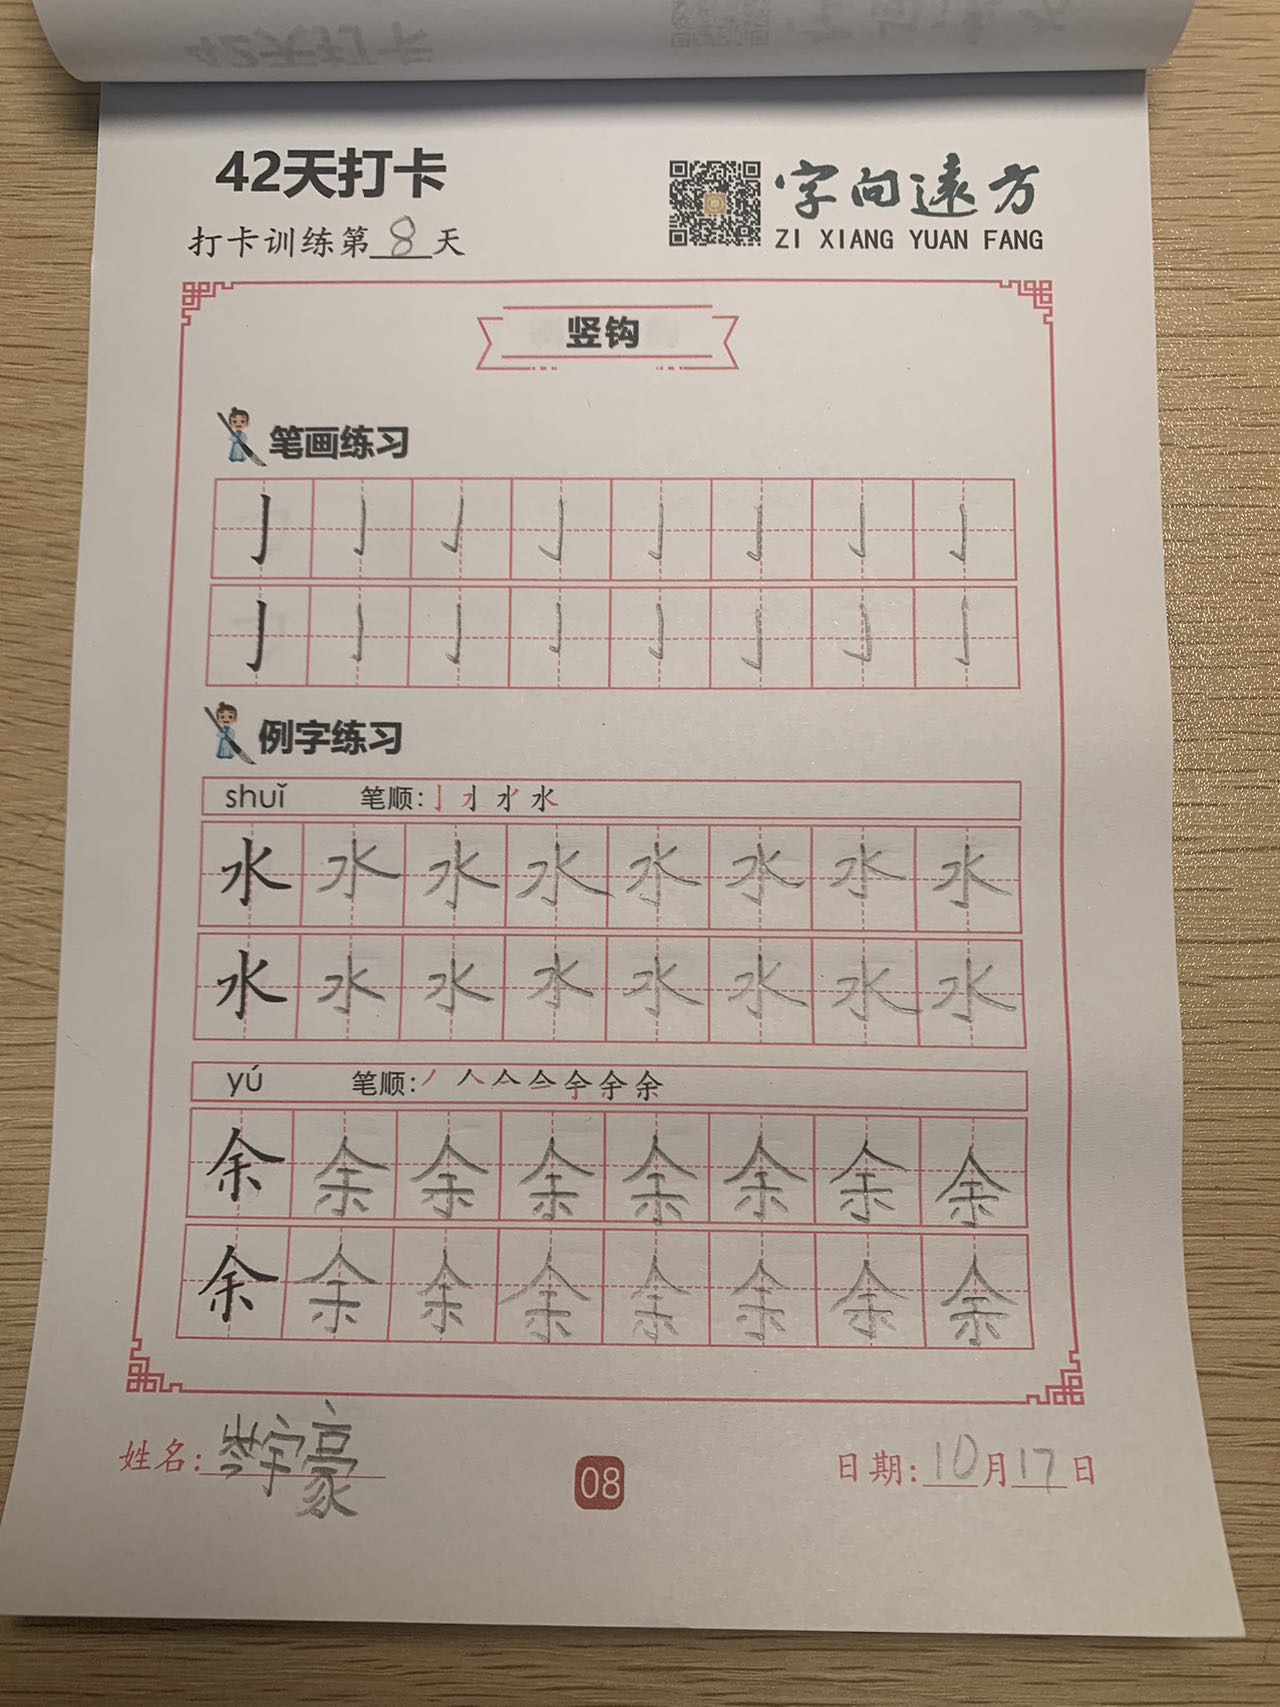 42天打卡
打卡训练第8天
字向遠方
ZI XIANG YUAN FANG
竖钩
笔画练习
亅亅亅亅亅亅亅亅
亅亅亅亅亅亅亅亅
例字练习
shuǐ 笔顺:
水水水水水水水水
水水水水水水水水
yú 笔顺:
余余余余余余余余
余余余余余余余余
姓名:岑宇豪
08
日期:10月17日